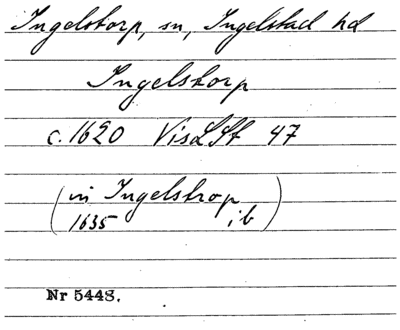 Ingelstorp, sn, Ingelstad hd
Ingelstorp
c. 1620 VisLSt 47
(in Ingelstrop
1635 ib)
Nr 5448.